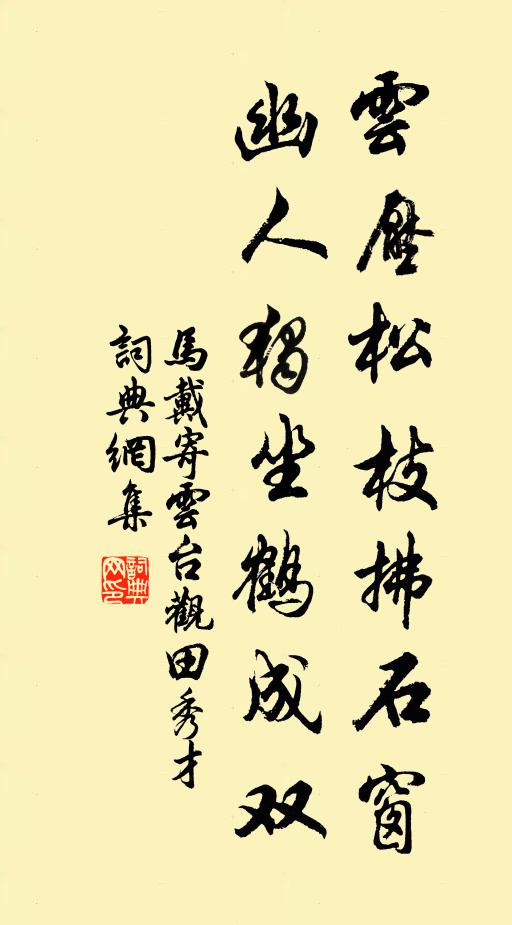 雲壓松枝拂石窗
幽人獨坐鶴成双
馬戴寄雲台觀田秀才
詞典網集
詞典网印